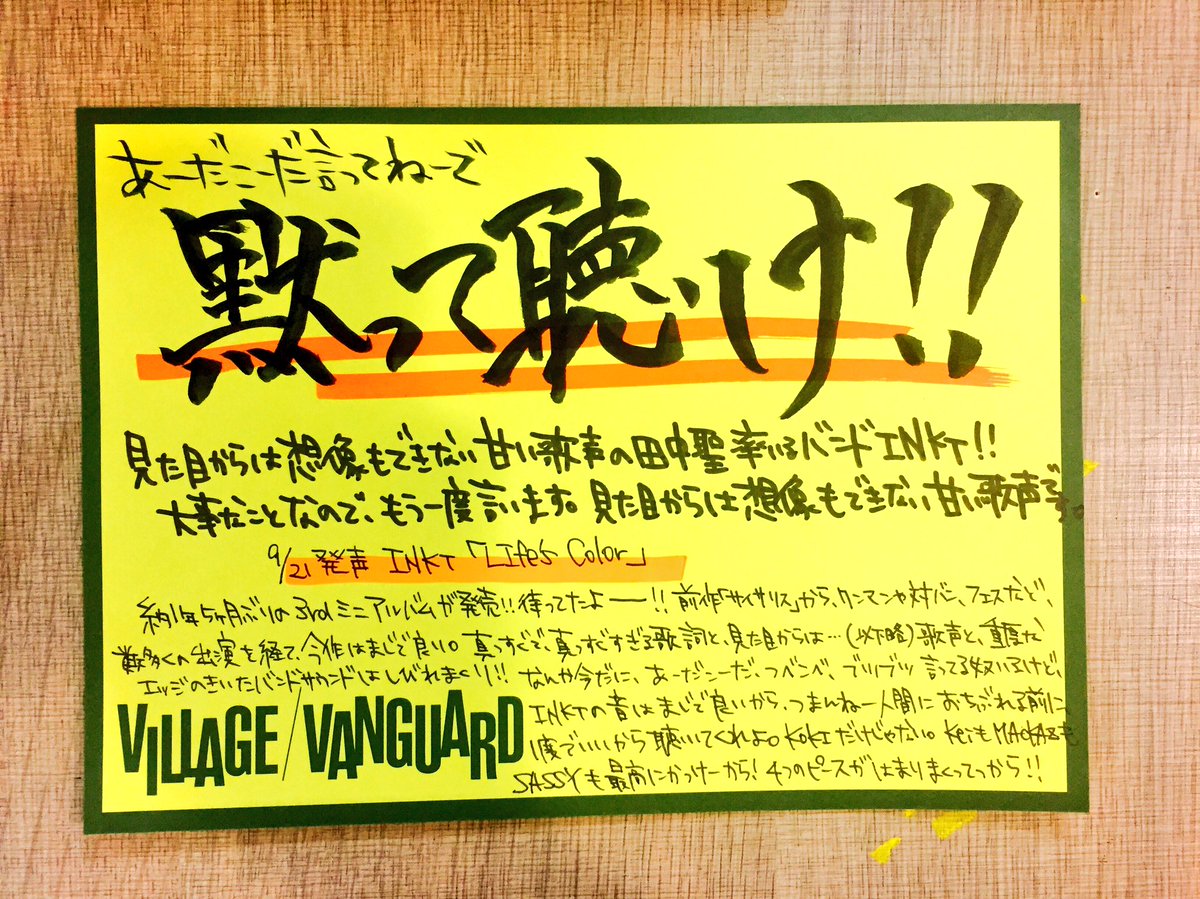 あーだこーだ言ってねーで
黙って聴いけ!!
見た目からは想像もできない甘い歌声の田中聖率いるバンドINKT!!
大事なことなので、もう一度言います。見た目からは想像もできない甘い歌声です。
9/21 発声 INKT「Life's Color」
約1年5ヶ月ぶりの3rdミニアルバムが発売!!待ってたよー!!前作「サイサリス」から、ワンマンや対バン、フェスなど、
数多くの出演を経て、今作はまじで良い。真っすぐで、真っすぐすぎる歌詞と、見た目からは…(以下略)歌声と、重厚な
エッジのきいたバンドサウンドはしびれまくり!!なんか今だに、あーだこーだ、つべこべ、ブツブツ言ってる奴いるけど、
INKTの音はまじで良いから、つまんねー人間におちぶれる前に
1度でいいから聴いてくれよ。KOKIだけじゃない。KeiもMAOKAZも
SASSYも最高にかっけーから!4つのピースがはまりまくってっから!!
VILLAGE/VANGUARD